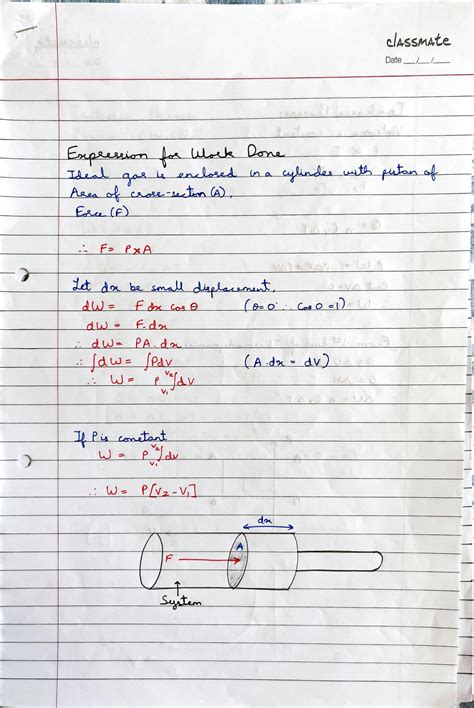 classmate
Date __/__/__
Expression for Work Done
Ideal gas is enclosed in a cylinder with piston of
Area of cross-section (A),
Force (F)
∴ F = P×A
Let dx be small displacement,
dW = F dx cos θ (θ=0 ∴ Cos 0 = 1)
dW = F. dx
∴ dW = PA. dx
∴ ∫dW = ∫Pdv (A. dx = dV)
∴ W = P V₂∫V₁ dV
If P is constant
W = P V₂∫V₁ dv
∴ W = P[V₂-V₁]
dx
F A
System